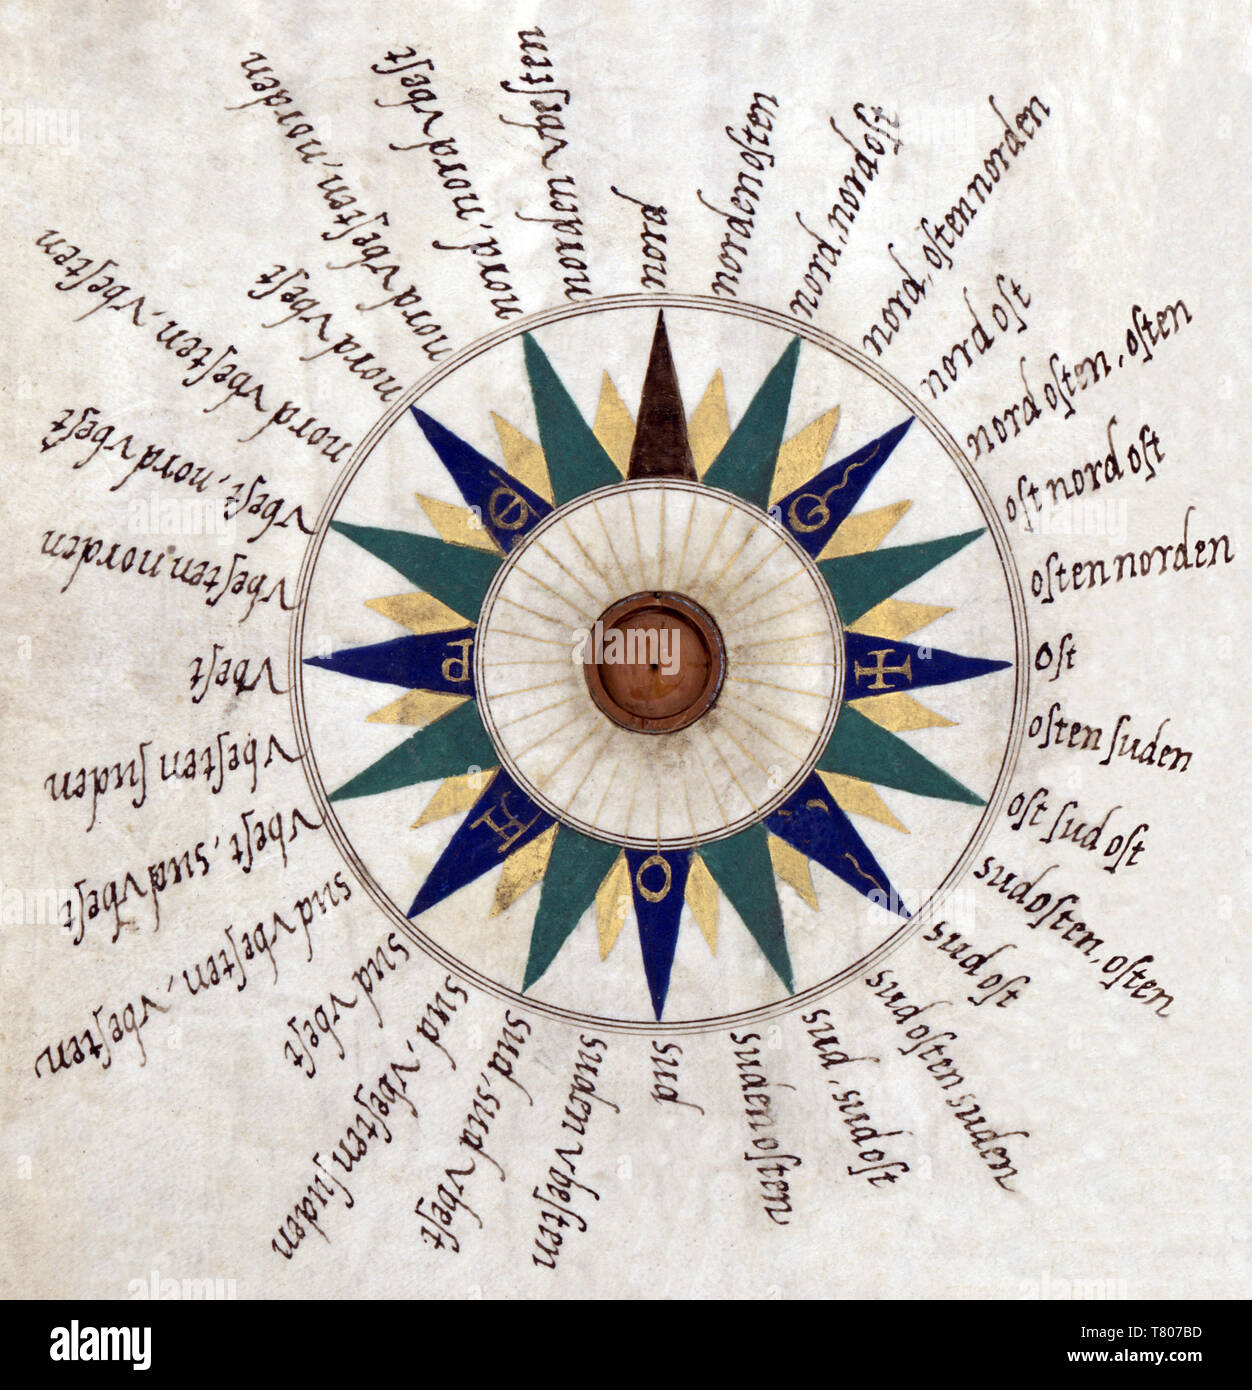 nord
nordenoſten
nord, nordoſt
nord, oſten norden
nord oſt
nord oſten, oſten
oſt nord oſt
oſten norden
oſt
oſten ſuden
oſt ſud oſt
sudoſten, oſten
sud oſt
sud oſten suden
sud, sud oſt
suden oſten
sud
suden vbeſten
sud, sud vbeſt
sud, vbeſten ſuden
sud vbeſt
sud vbeſten, vbeſten
vbeſt, sud vbeſt
vbeſten ſuden
vbeſt
vbeſten norden
vbeſt, nord vbeſt
nord vbeſten, vbeſten
nord vbeſt
nord vbeſten, norden
nord, nord vbeſt
norden vbeſten
G
P
A
O
alamy
Image ID: T807BD
www.alamy.com